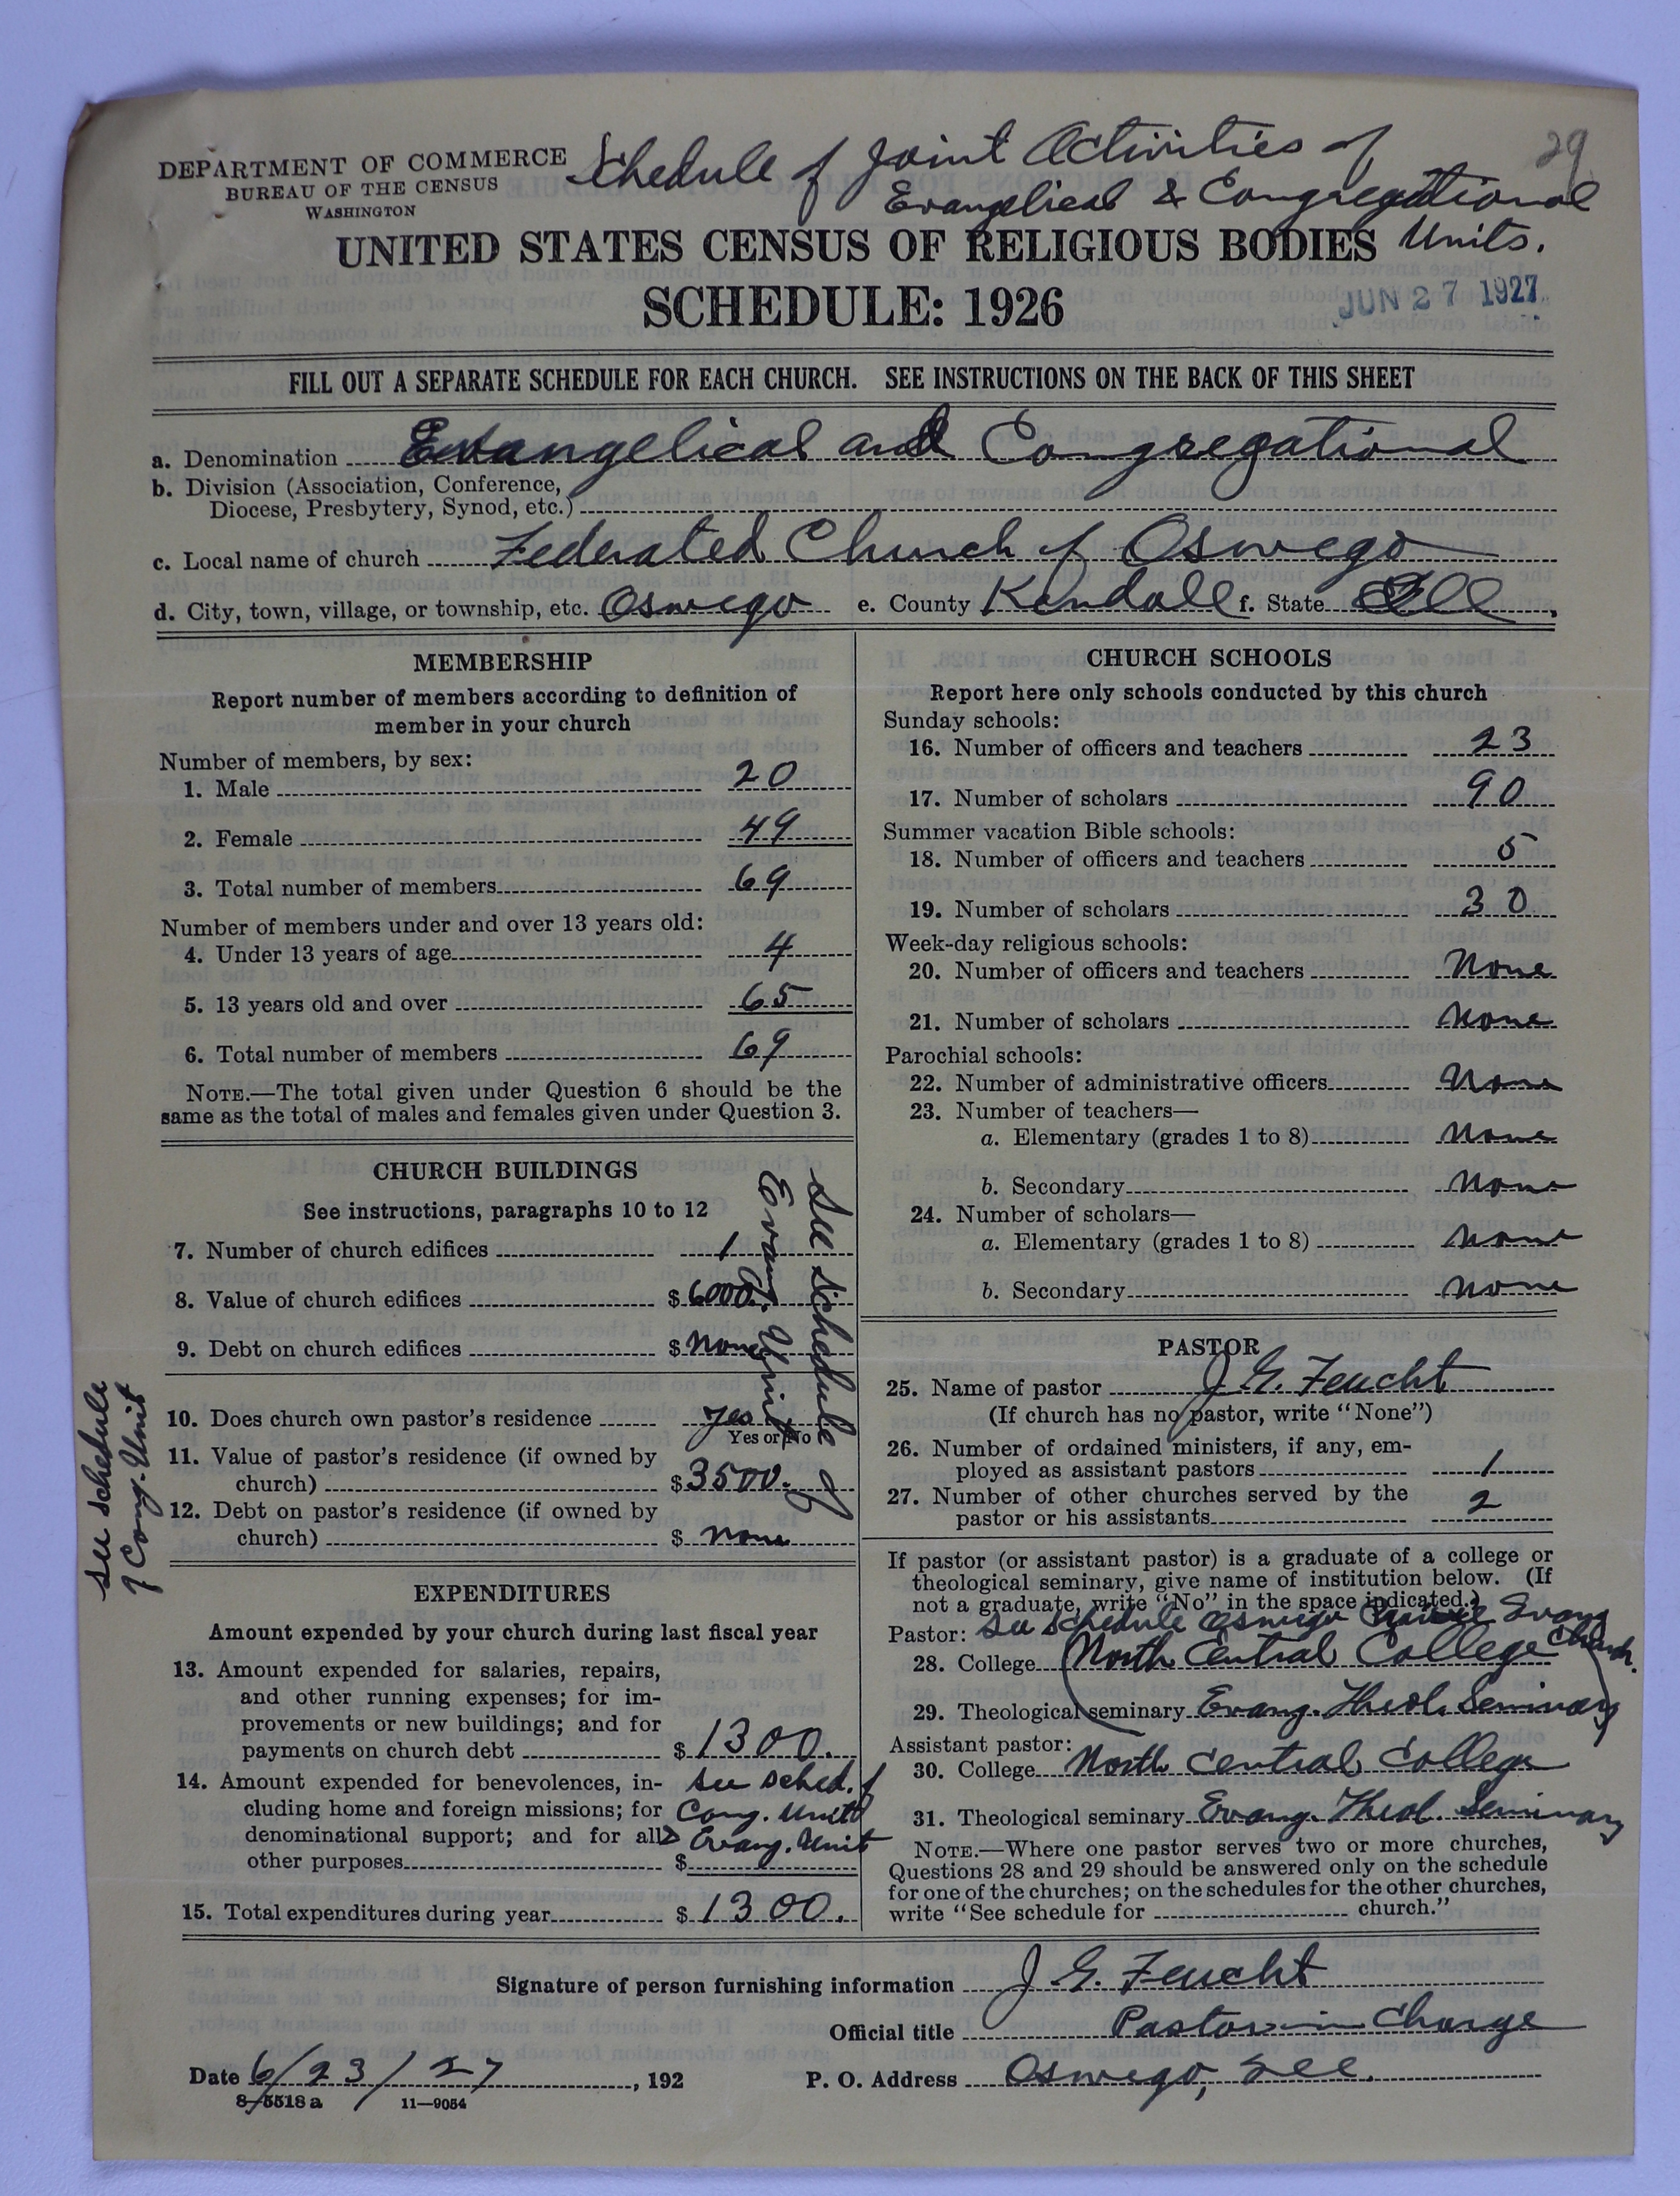 29
DEPARTMENT OF COMMERCE
BUREAU OF THE CENSUS
WASHINGTON
Schedule of Joint Activities of
Evangelical & Congregational
Units.
UNITED STATES CENSUS OF RELIGIOUS BODIES
SCHEDULE: 1926
JUN 27 1927
FILL OUT A SEPARATE SCHEDULE FOR EACH CHURCH. SEE INSTRUCTIONS ON THE BACK OF THIS SHEET
a. Denomination Evangelical and Congregational
b. Division (Association, Conference,
Diocese, Presbytery, Synod, etc.)
c. Local name of church Federated Church of Oswego
d. City, town, village, or township, etc. Oswego e. County Kendall f. State Ill
MEMBERSHIP
Report number of members according to definition of
member in your church
Number of members, by sex:
1. Male 20
2. Female 49
3. Total number of members 69
Number of members under and over 13 years old:
4. Under 13 years of age 4
5. 13 years old and over 65
6. Total number of members 69
NOTE.—The total given under Question 6 should be the
same as the total of males and females given under Question 3.
CHURCH BUILDINGS
See instructions, paragraphs 10 to 12
7. Number of church edifices 1
8. Value of church edifices $ 6000.
9. Debt on church edifices $ None
See schedule of
Evang. Unit
10. Does church own pastor's residence yes
Yes or No
11. Value of pastor's residence (if owned by
church) $ 3500.
12. Debt on pastor's residence (if owned by
church) $ none
see schedule
of Cong. Unit
EXPENDITURES
Amount expended by your church during last fiscal year
13. Amount expended for salaries, repairs,
and other running expenses; for im-
provements or new buildings; and for
payments on church debt $ 1300.
14. Amount expended for benevolences, in-
cluding home and foreign missions; for
denominational support; and for all
other purposes $
see sched. of
Cong. Unit
Evang. Unit
15. Total expenditures during year $ 1300.
CHURCH SCHOOLS
Report here only schools conducted by this church
Sunday schools:
16. Number of officers and teachers 23
17. Number of scholars 90
Summer vacation Bible schools:
18. Number of officers and teachers 5
19. Number of scholars 30
Week-day religious schools:
20. Number of officers and teachers None
21. Number of scholars None
Parochial schools:
22. Number of administrative officers None
23. Number of teachers—
a. Elementary (grades 1 to 8) None
b. Secondary None
24. Number of scholars—
a. Elementary (grades 1 to 8) None
b. Secondary None
PASTOR
25. Name of pastor J. G. Feucht
(If church has no pastor, write "None")
26. Number of ordained ministers, if any, em-
ployed as assistant pastors 1
27. Number of other churches served by the
pastor or his assistants 2
If pastor (or assistant pastor) is a graduate of a college or
theological seminary, give name of institution below. (If
not a graduate, write "No" in the space indicated.)
Pastor: See schedule Oswego Prairie Evang
Church.
28. College (North Central College
29. Theological seminary Evang. Theol. Seminary)
Assistant pastor:
30. College North Central College
31. Theological seminary Evang. Theol. Seminary
NOTE.—Where one pastor serves two or more churches,
Questions 28 and 29 should be answered only on the schedule
for one of the churches; on the schedules for the other churches,
write "See schedule for church."
Signature of person furnishing information J. G. Feucht
Official title Pastor in Charge
Date 6/23/27, 192 P. O. Address Oswego, Ill.
8-5518 a 11—9054